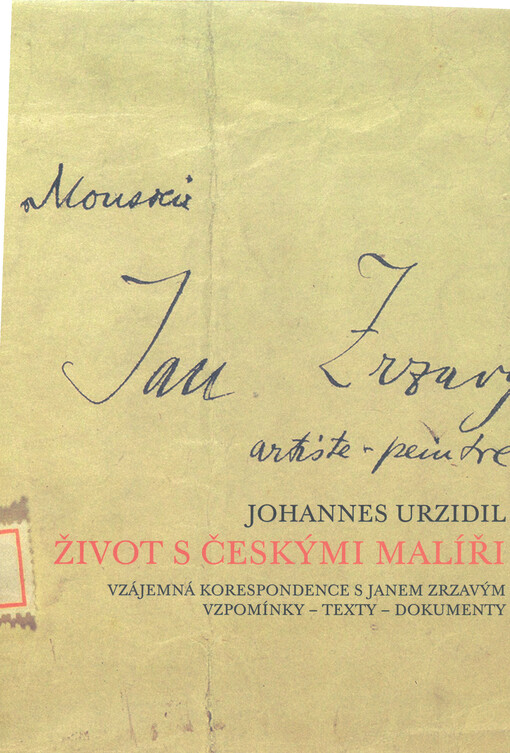 Monsieur
Jan Zrzavý
artiste-peintre
JOHANNES URZIDIL
ŽIVOT S ČESKÝMI MALÍŘI
VZÁJEMNÁ KORESPONDENCE S JANEM ZRZAVÝM
VZPOMÍNKY – TEXTY – DOKUMENTY